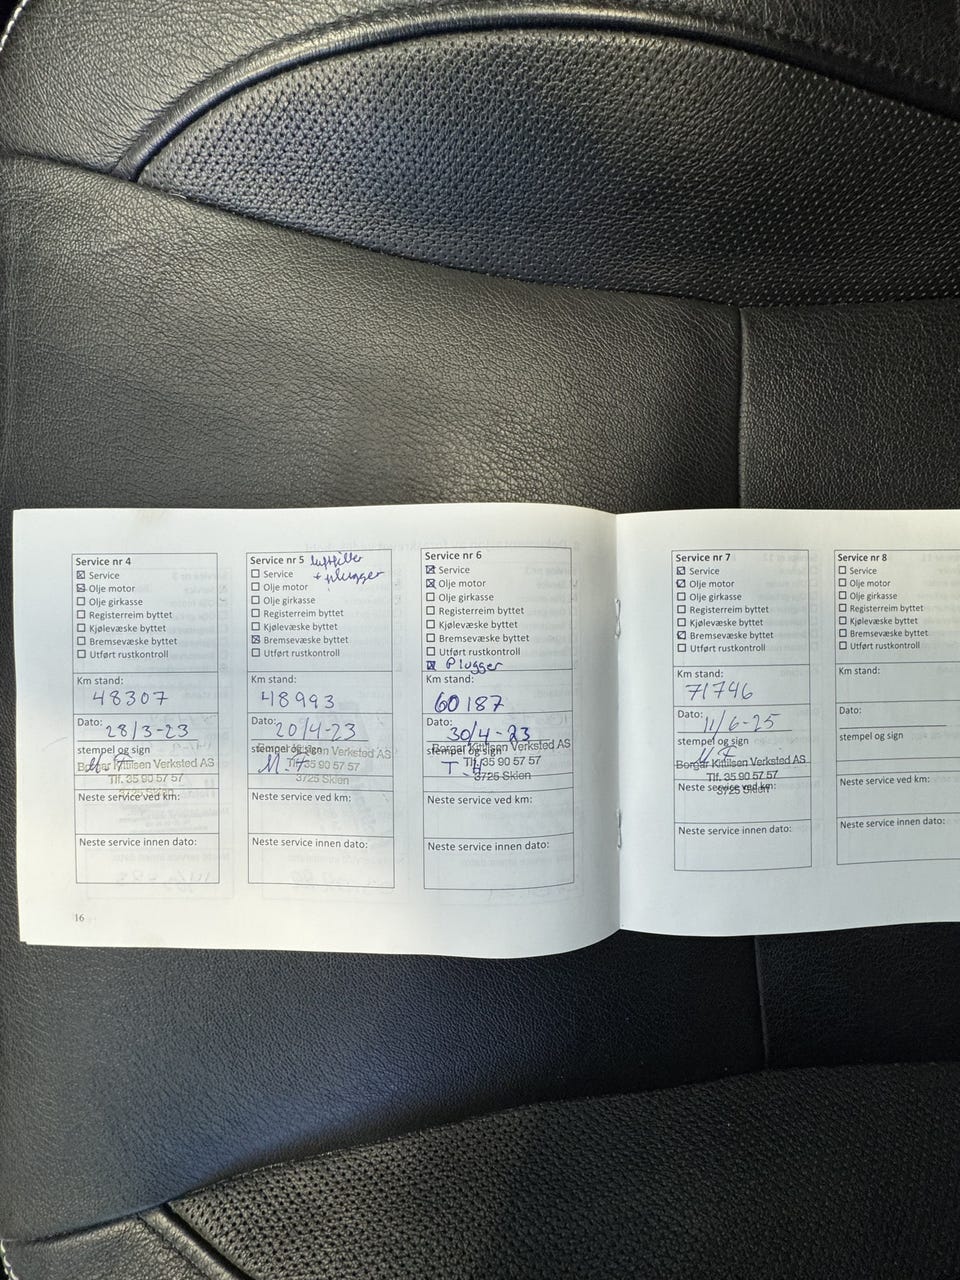 Service nr 4
Service
Olje motor
Olje girkasse
Registerreim byttet
Kjølevæske byttet
Bremsevæske byttet
Utført rustkontroll
Km stand:
48307
Dato:
28/3-23
stempel og sign
Borgar Kittilsen Verksted AS
Tlf. 35 90 57 57
3725 Skien
Neste service ved km:
Neste service innen dato:
16
Service nr 5 luftfilter
Service + plugger
Olje motor
Olje girkasse
Registerreim byttet
Kjølevæske byttet
Bremsevæske byttet
Utført rustkontroll
Km stand:
48993
Dato:
20/4-23
stempel og sign
Borgar Kittilsen Verksted AS
Tlf. 35 90 57 57
3725 Skien
Neste service ved km:
Neste service innen dato:
Service nr 6
Service
Olje motor
Olje girkasse
Registerreim byttet
Kjølevæske byttet
Bremsevæske byttet
Utført rustkontroll
Plugger
Km stand:
60187
Dato:
30/4-23
stempel og sign
Borgar Kittilsen Verksted AS
Tlf. 35 90 57 57
3725 Skien
Neste service ved km:
Neste service innen dato:
Service nr 7
Service
Olje motor
Olje girkasse
Registerreim byttet
Kjølevæske byttet
Bremsevæske byttet
Utført rustkontroll
Km stand:
71746
Dato:
11/6-25
stempel og sign
Borgar Kittilsen Verksted AS
Tlf. 35 90 57 57
3725 Skien
Neste service ved km:
Neste service innen dato:
Service nr 8
Service
Olje motor
Olje girkasse
Registerreim byttet
Kjølevæske byttet
Bremsevæske byttet
Utført rustkontroll
Km stand:
Dato:
stempel og sign
Neste service ved km:
Neste service innen dato: